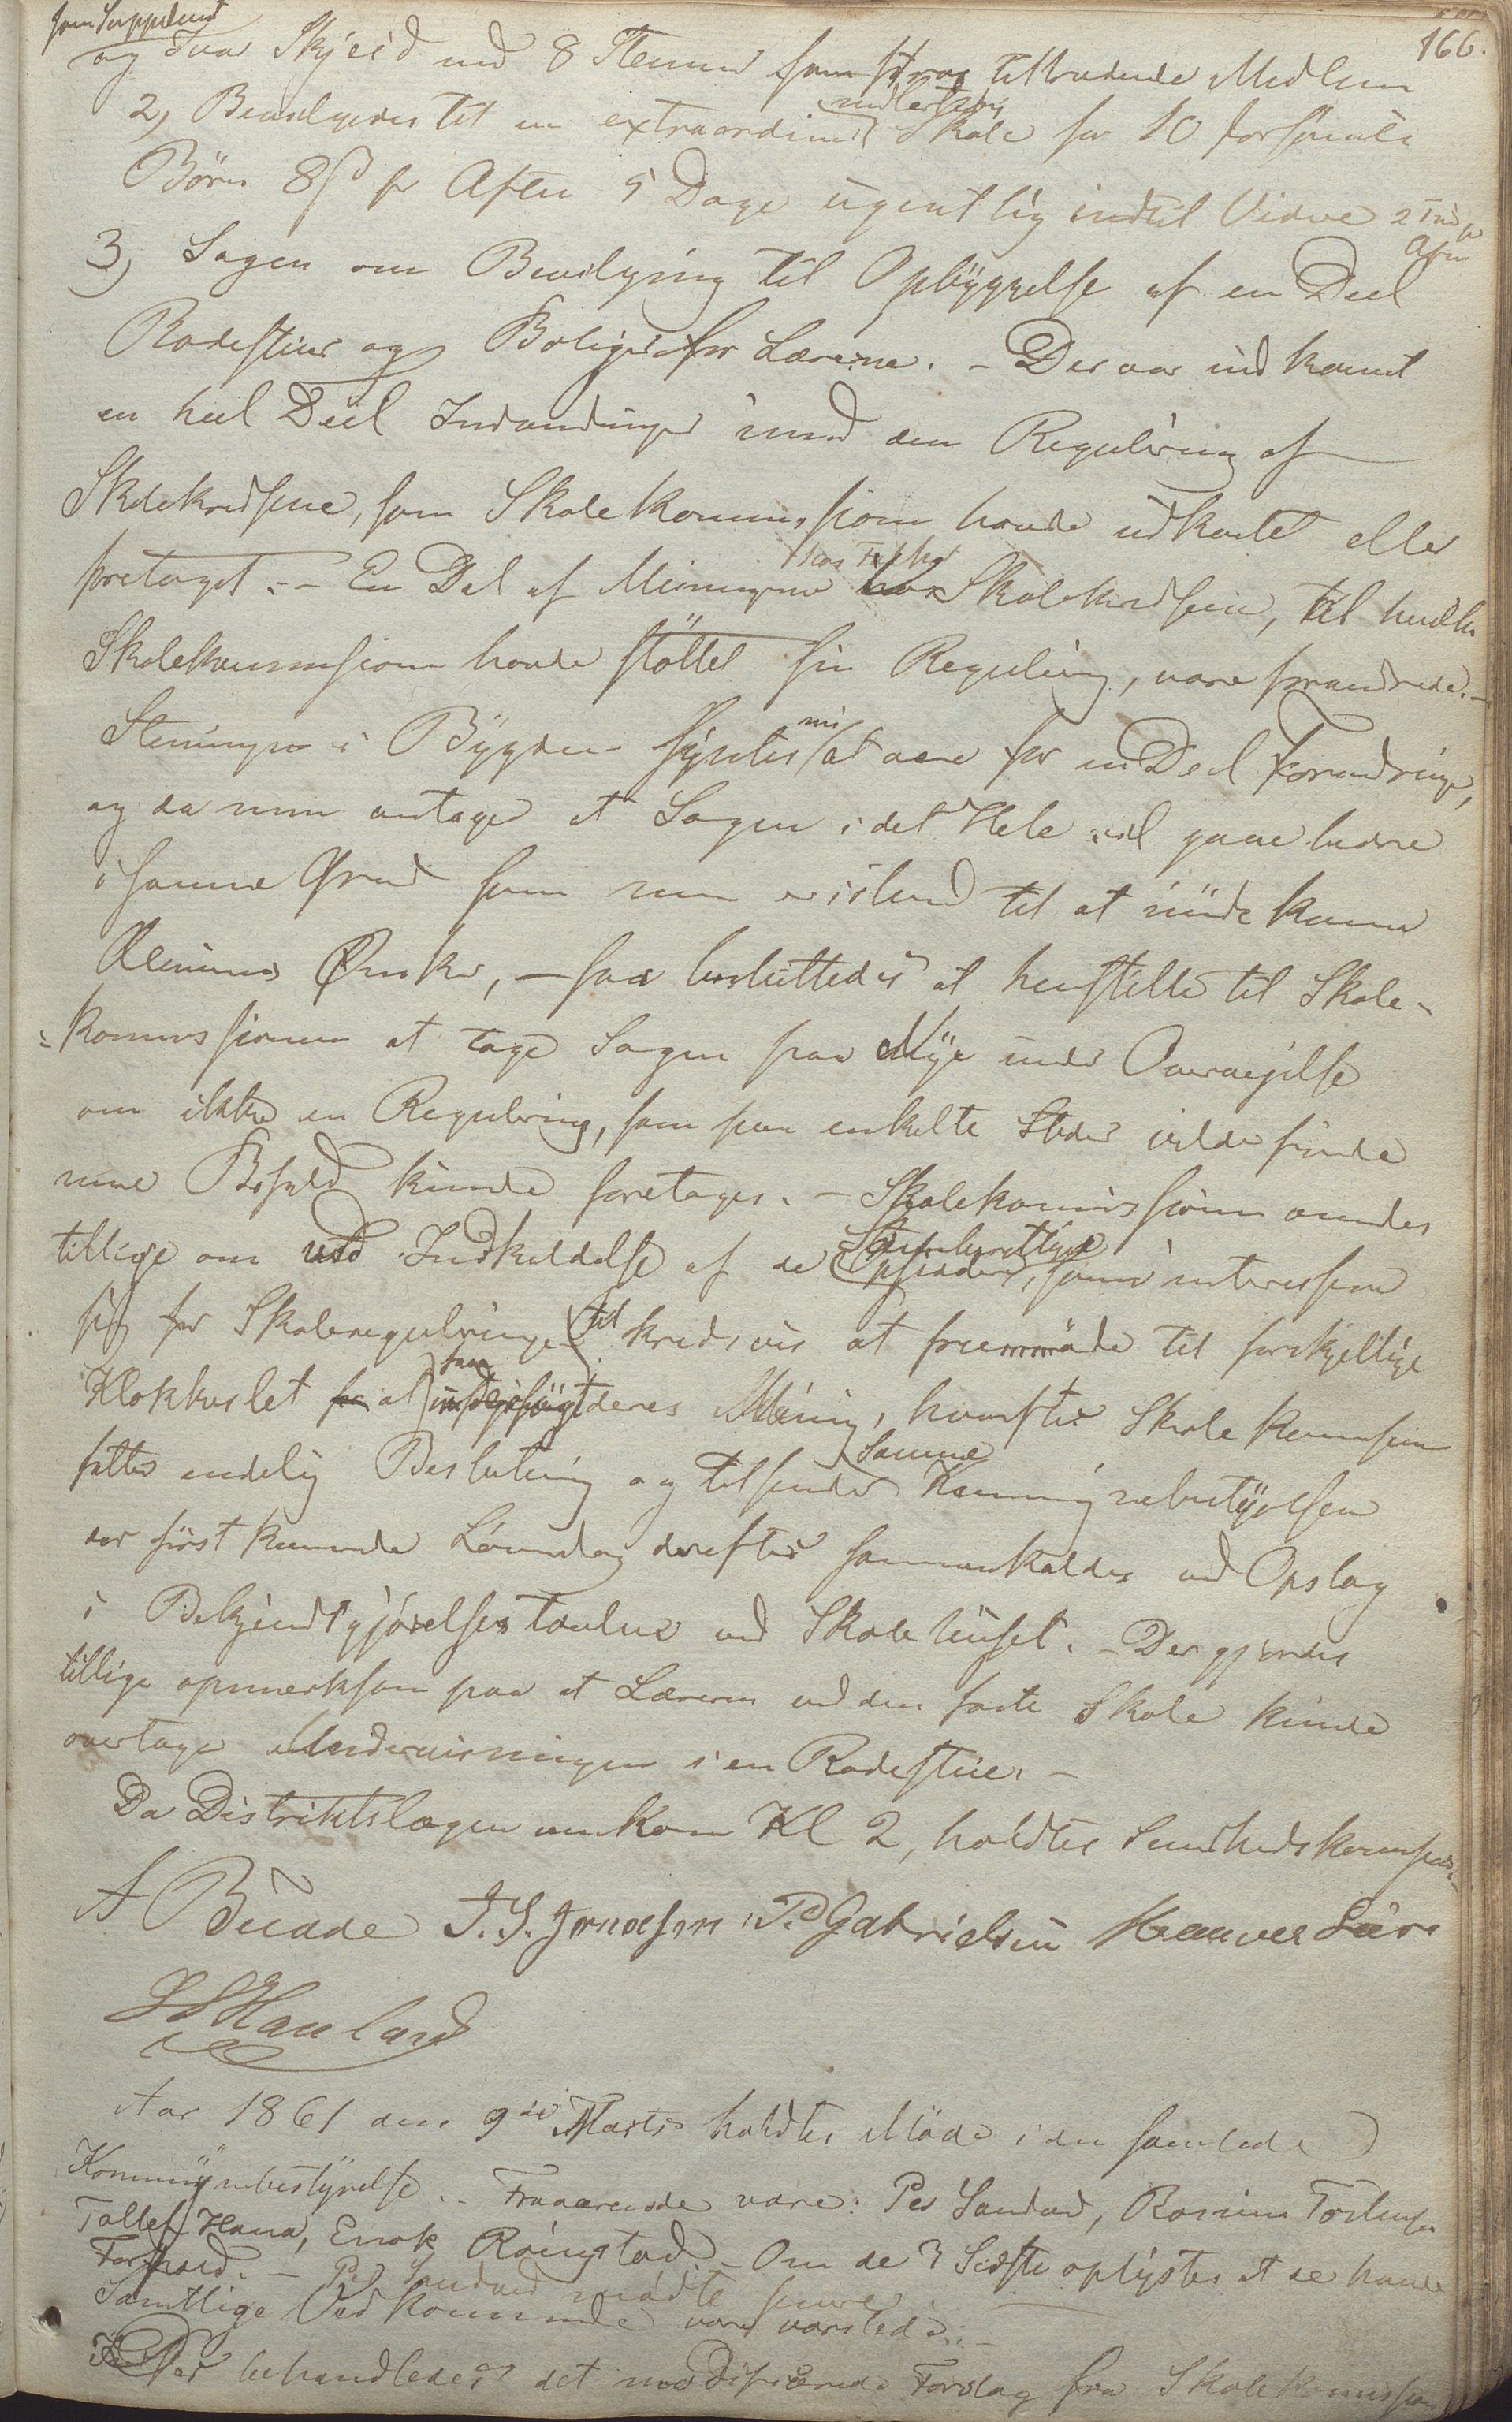 som Suppleant
166.
og Ivar Skjeid med 8 Stemmer som strax tiltrædende Medlem
midlertidig
2, Bevilgedes til en extraordinær Skole for 10 forsømte
Børn 8 ß pr Aften 5 Dage ugentlig indtil Videre 2 Tim pr
Aften
3, Sagen om Bevilgning til Opbyggelse af en Deel
Rodestuer og Boliger for Lærerne. - Der var indkommet
en heel Deel Indvendinger imod den Regulering af
Skolekredsene, som Skolekommissionen havde udkastet eller
foretaget. - En Del af Meningerne hos Skolekredsene, til hvilke
Skolekommissionen havde støttet sin Regulering, vare forandrede. -
Stemningen i Bygden syntes nu at være for en Deel Forandringer,
og da man antager at Sagen i det Hele vil gaae bedre
i samme Grad som man er istand til at imødekomme
Almenens Ønsker, - saa besluttedes at henstille til Skole-
kommissionen at tage Sagen paa Nye under Overveielse
om ikke en Regulering, som paa enkelte Steder vilde finde
mere Bifald kunde foretages. - Skolekommissionen anmodes
tillige om ved Indkaldelse af de Stemberettigede, som interessere
sig for Skolereguleringen til kredsvis at fremmøde til forskjellige
Klokkeslet for at faa deres Mening, hvorefter Skolekommissionen
fatter endelig Beslutning og tilsender Samme Kommunebestyrelsen
der først kommende Løverdag derefter sammenkaldes ved Opslag
i Bekjendtgjørelsestavlen ved Skolehuset. - Der gjordes
tillige opmerksom paa at Læreren ved den faste Skole kunde
overtage Undervisningen i en Rodestue. -
Da Distriktslægen ankom Kl 2, holdtes Sundhedskommission. -
A Buade J. S. Jonassen P. Gabrielsen
Haaland
Aar 1861 den 9de Marts holdtes Møde i den samlede
Kommunebestyrelse. - Fraværende vare: Per Sandved, Rasmus Torkelsen
Tollef Hana, Enok Röingstad. - Om de 3 Sidste oplystes at de havde
Forfald. - Per Sandved mødte senere.
Samtlige Vedkommende vare varslede. -
Der behandledes det modificerede Forslag fra Skolekommissionen